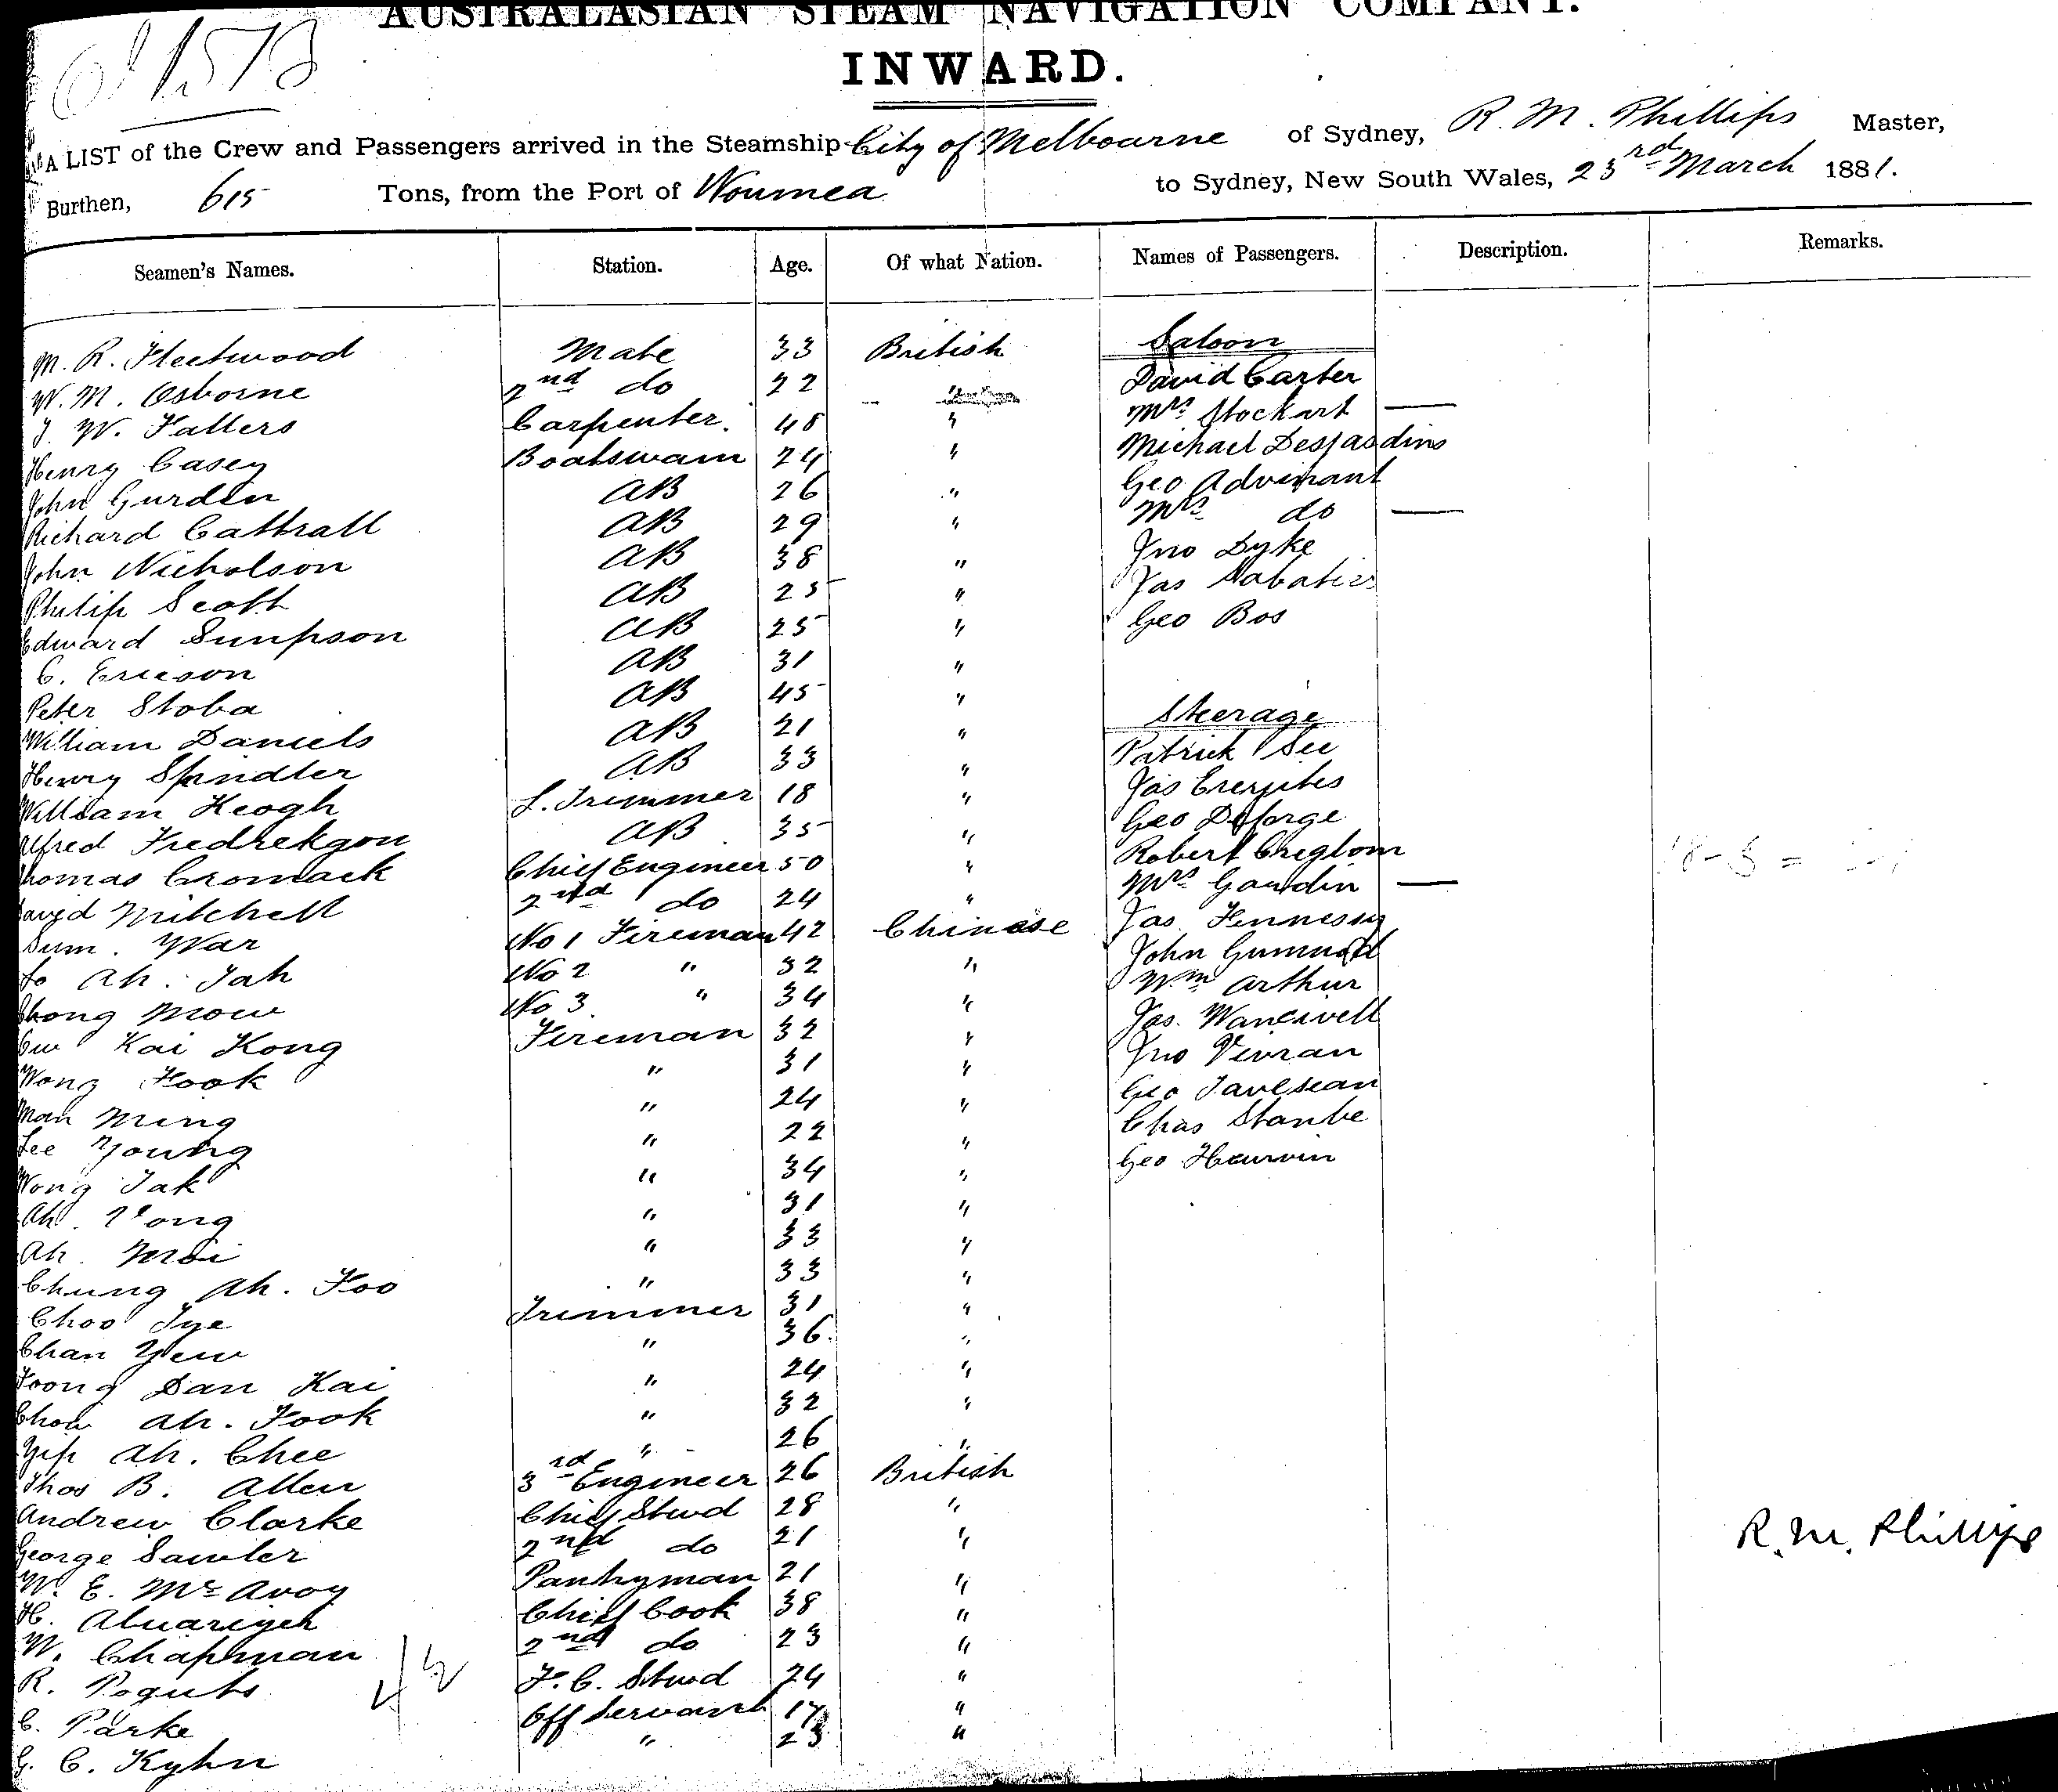 AUSTRALASIAN STEAM NAVIGATION COMPANY.
INWARD.
A LIST of the Crew and Passengers arrived in the Steamship City of Melbourne of Sydney, R. M. Phillips Master,
Burthen, 615 Tons, from the Port of Noumea to Sydney, New South Wales, 23rd March 1881.
Seamen's Names. Station. Age. Of what Nation. Names of Passengers. Description. Remarks.
M. R. Fleetwood Mate 33 British Saloon
W. M. Osborne 2nd do 22 " David Carter
J. W. Falters Carpenter. 48 " Mrs Stockart —
Henry Casey Boatswain 24 " Michael Desjardins
John Gurden AB 26 " Geo
Richard Cattrall AB 29 " Mrs do —
John Nicholson AB 38 " Jno Dyke
Philip Scott AB 25 " Jas Sabatier
Edward Simpson AB 25 " Geo Bos
C. Ericson AB 31 "
Peter Stoba AB 45 "
William Daniels AB 21 " Steerage
Henry Spindler AB 33 " Patrick See
William Keogh L. Trimmer 18 " Jas
Alfred AB 35 " Geo Deforge
Thomas Cromack Chief Engineer 50 " Robert
David Mitchell 2nd do 24 " Mrs Gaudin —
Sum. War No 1 Fireman 42 Chinese Jas Hennessy
Ah. Jah No 2 " 32 " John
Mow No 3 " 34 " Wm Arthur
Kai Kong Fireman 32 " Jas.
Wong Hook " 31 " Jno
Man Ming " 24 " Geo
Lee Young " 22 " Chas
Wong Jak " 34 " Geo
Ah. Vong " 31 "
Ah. Moi " 33 "
Chung Ah. Foo " 33 "
Choo Tye Trimmer 31 "
Chan Yew " 36. "
Foong San Kai " 24 "
Chow Ah. Fook " 32 "
Yip Ah. Chee " 26 "
Thos B. Allen 3rd Engineer 26 British
Andrew Clarke Chief Stwd 28 "
George Sawter 2nd do 21 " R. M. Phillips
W. E. McAvoy Pantryman 21 "
H. Chief Cook 38 "
W. Chapman 2nd do 23 "
R. F. C. Stwd 24 "
C. Parke Off Servant 17 "
G. C. Kyhn " 23 "